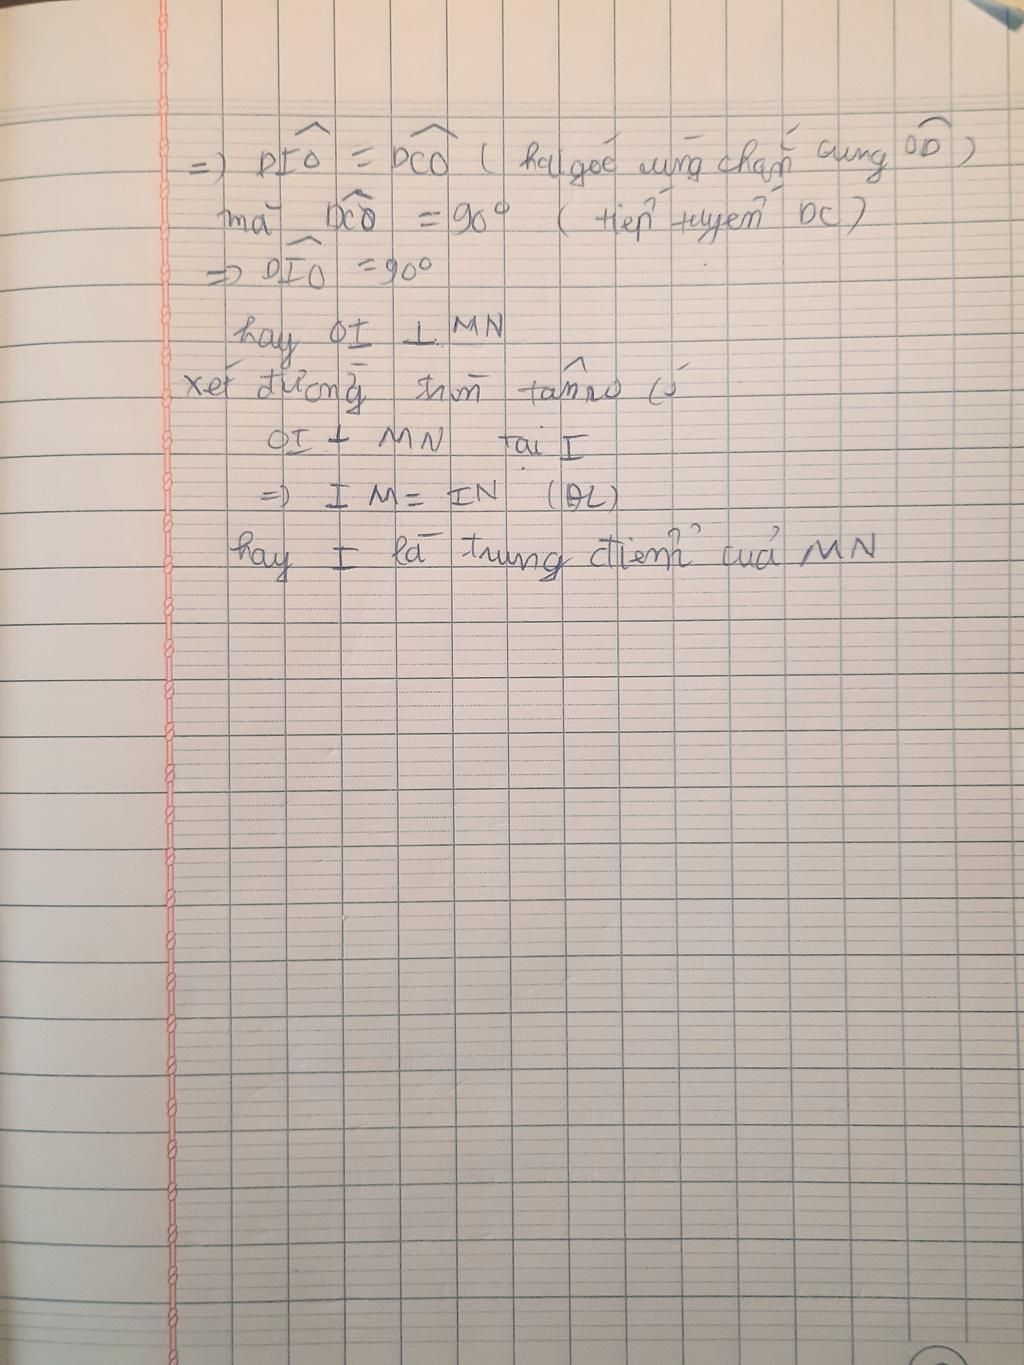 =) DIO = DCO ( hai góc cùng chắn cung OD )
mà DCO = 90° ( tiếp tuyến DC)
=> DIO = 90°
hay OI ⊥ MN
xét đường tròn tâm O có
OI ⊥ MN tại I
=) IM = IN (ĐL)
hay I là trung điểm của MN